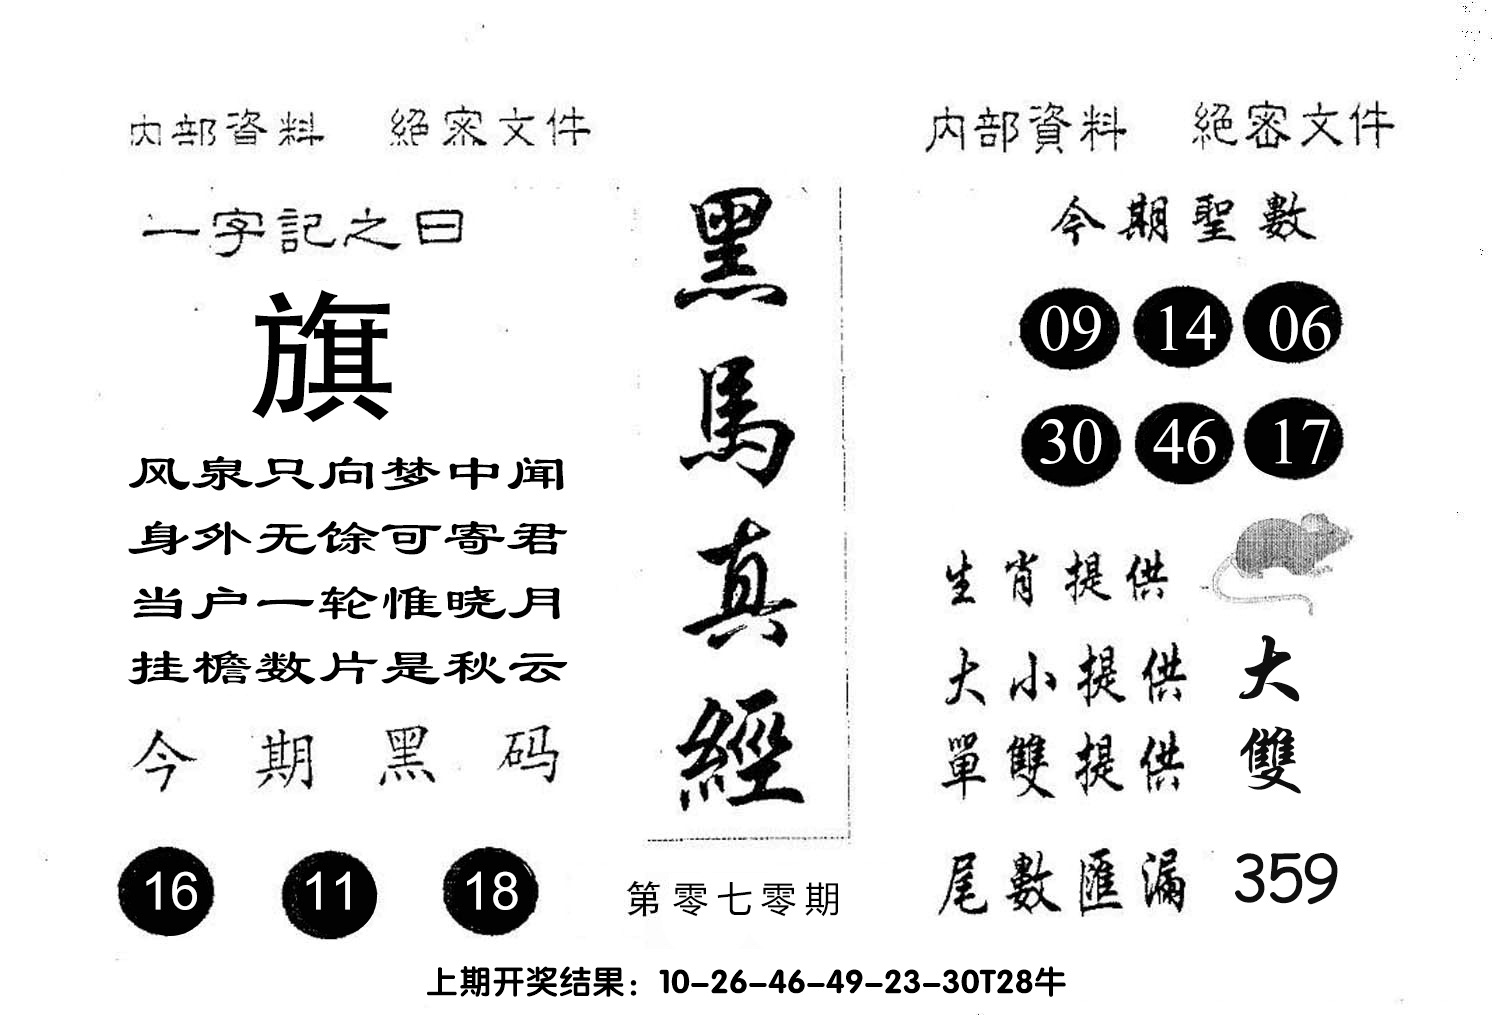 内部資料 絕密文件
一字記之曰
旗
风泉只向梦中闻
身外无馀可寄君
当户一轮惟晓月
挂檐数片是秋云
今期黑码
16 11 18
黑馬真經
第零七零期
内部資料 絕密文件
今期聖數
09 14 06
30 46 17
生肖提供
大小提供 大
單雙提供 雙
尾數匯漏 359
上期开奖结果：10-26-46-49-23-30T28牛